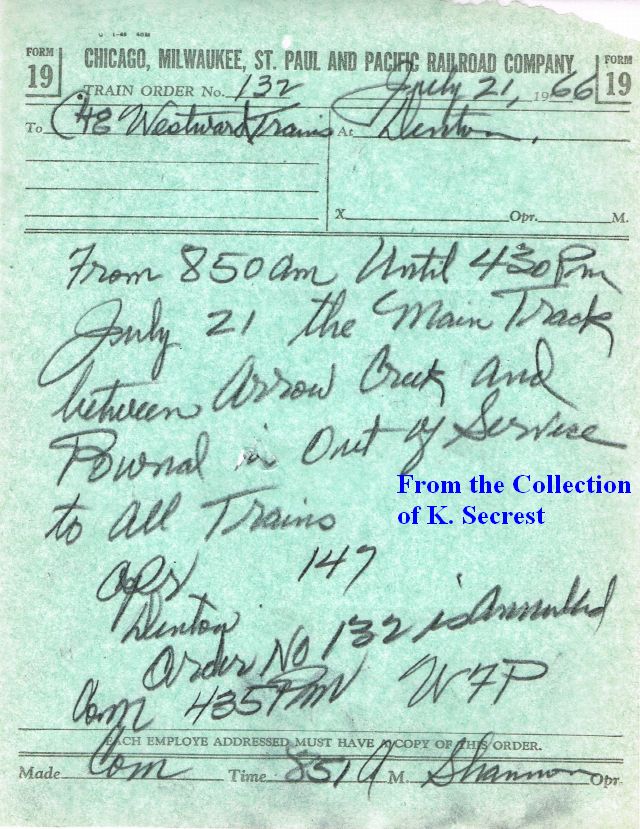 FORM 19
CHICAGO, MILWAUKEE, ST. PAUL AND PACIFIC RAILROAD COMPANY
FORM 19
TRAIN ORDER No. 132 July 21, 1966
To C&E Westward Trains At Denton,
X Opr. M.
From 850 am Until 430 Pm
July 21 the Main Track
between Arrow Creek and
Pownal is Out of Service
to All Trains
From the Collection
of K. Secrest
opr 147
Denton
Order No 132 is Annulled
Com 435 Pm WFP
EACH EMPLOYE ADDRESSED MUST HAVE A COPY OF THIS ORDER.
Made Com Time 851 A M. Shannon Opr